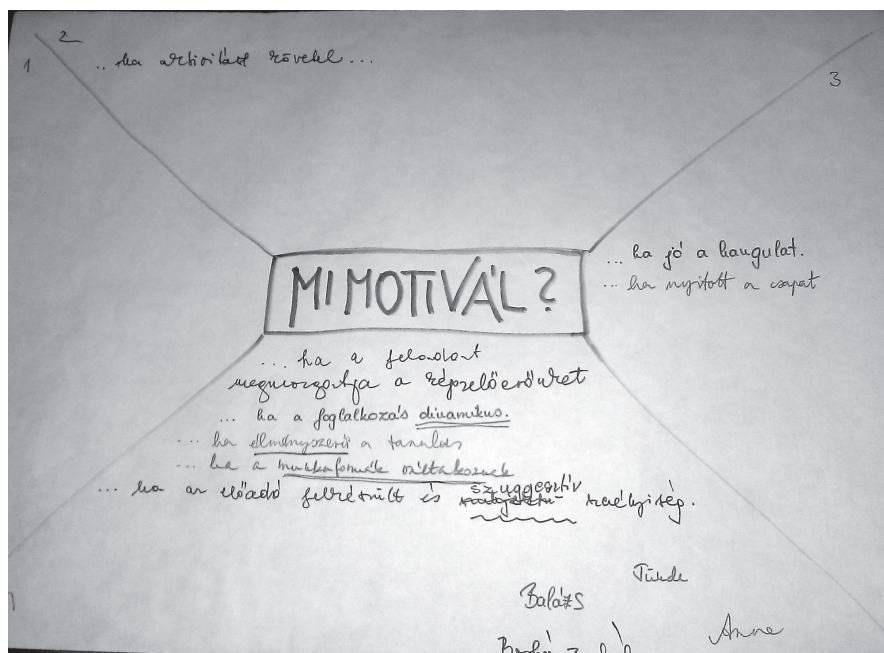 2
1
.. ha aktivitást növel...
3
MI MOTIVÁL?
... ha jó a hangulat.
... ha nyitott a csapat
... ha a feladat
megmozgatja a képzelőerőnket
... ha a foglalkozás dinamikus.
... ha élményszerű a tanulás
... ha a munkaformák váltakoznak
... ha az előadó felkészült és szuggesztív személyiség.
Tünde
Balázs
Anna